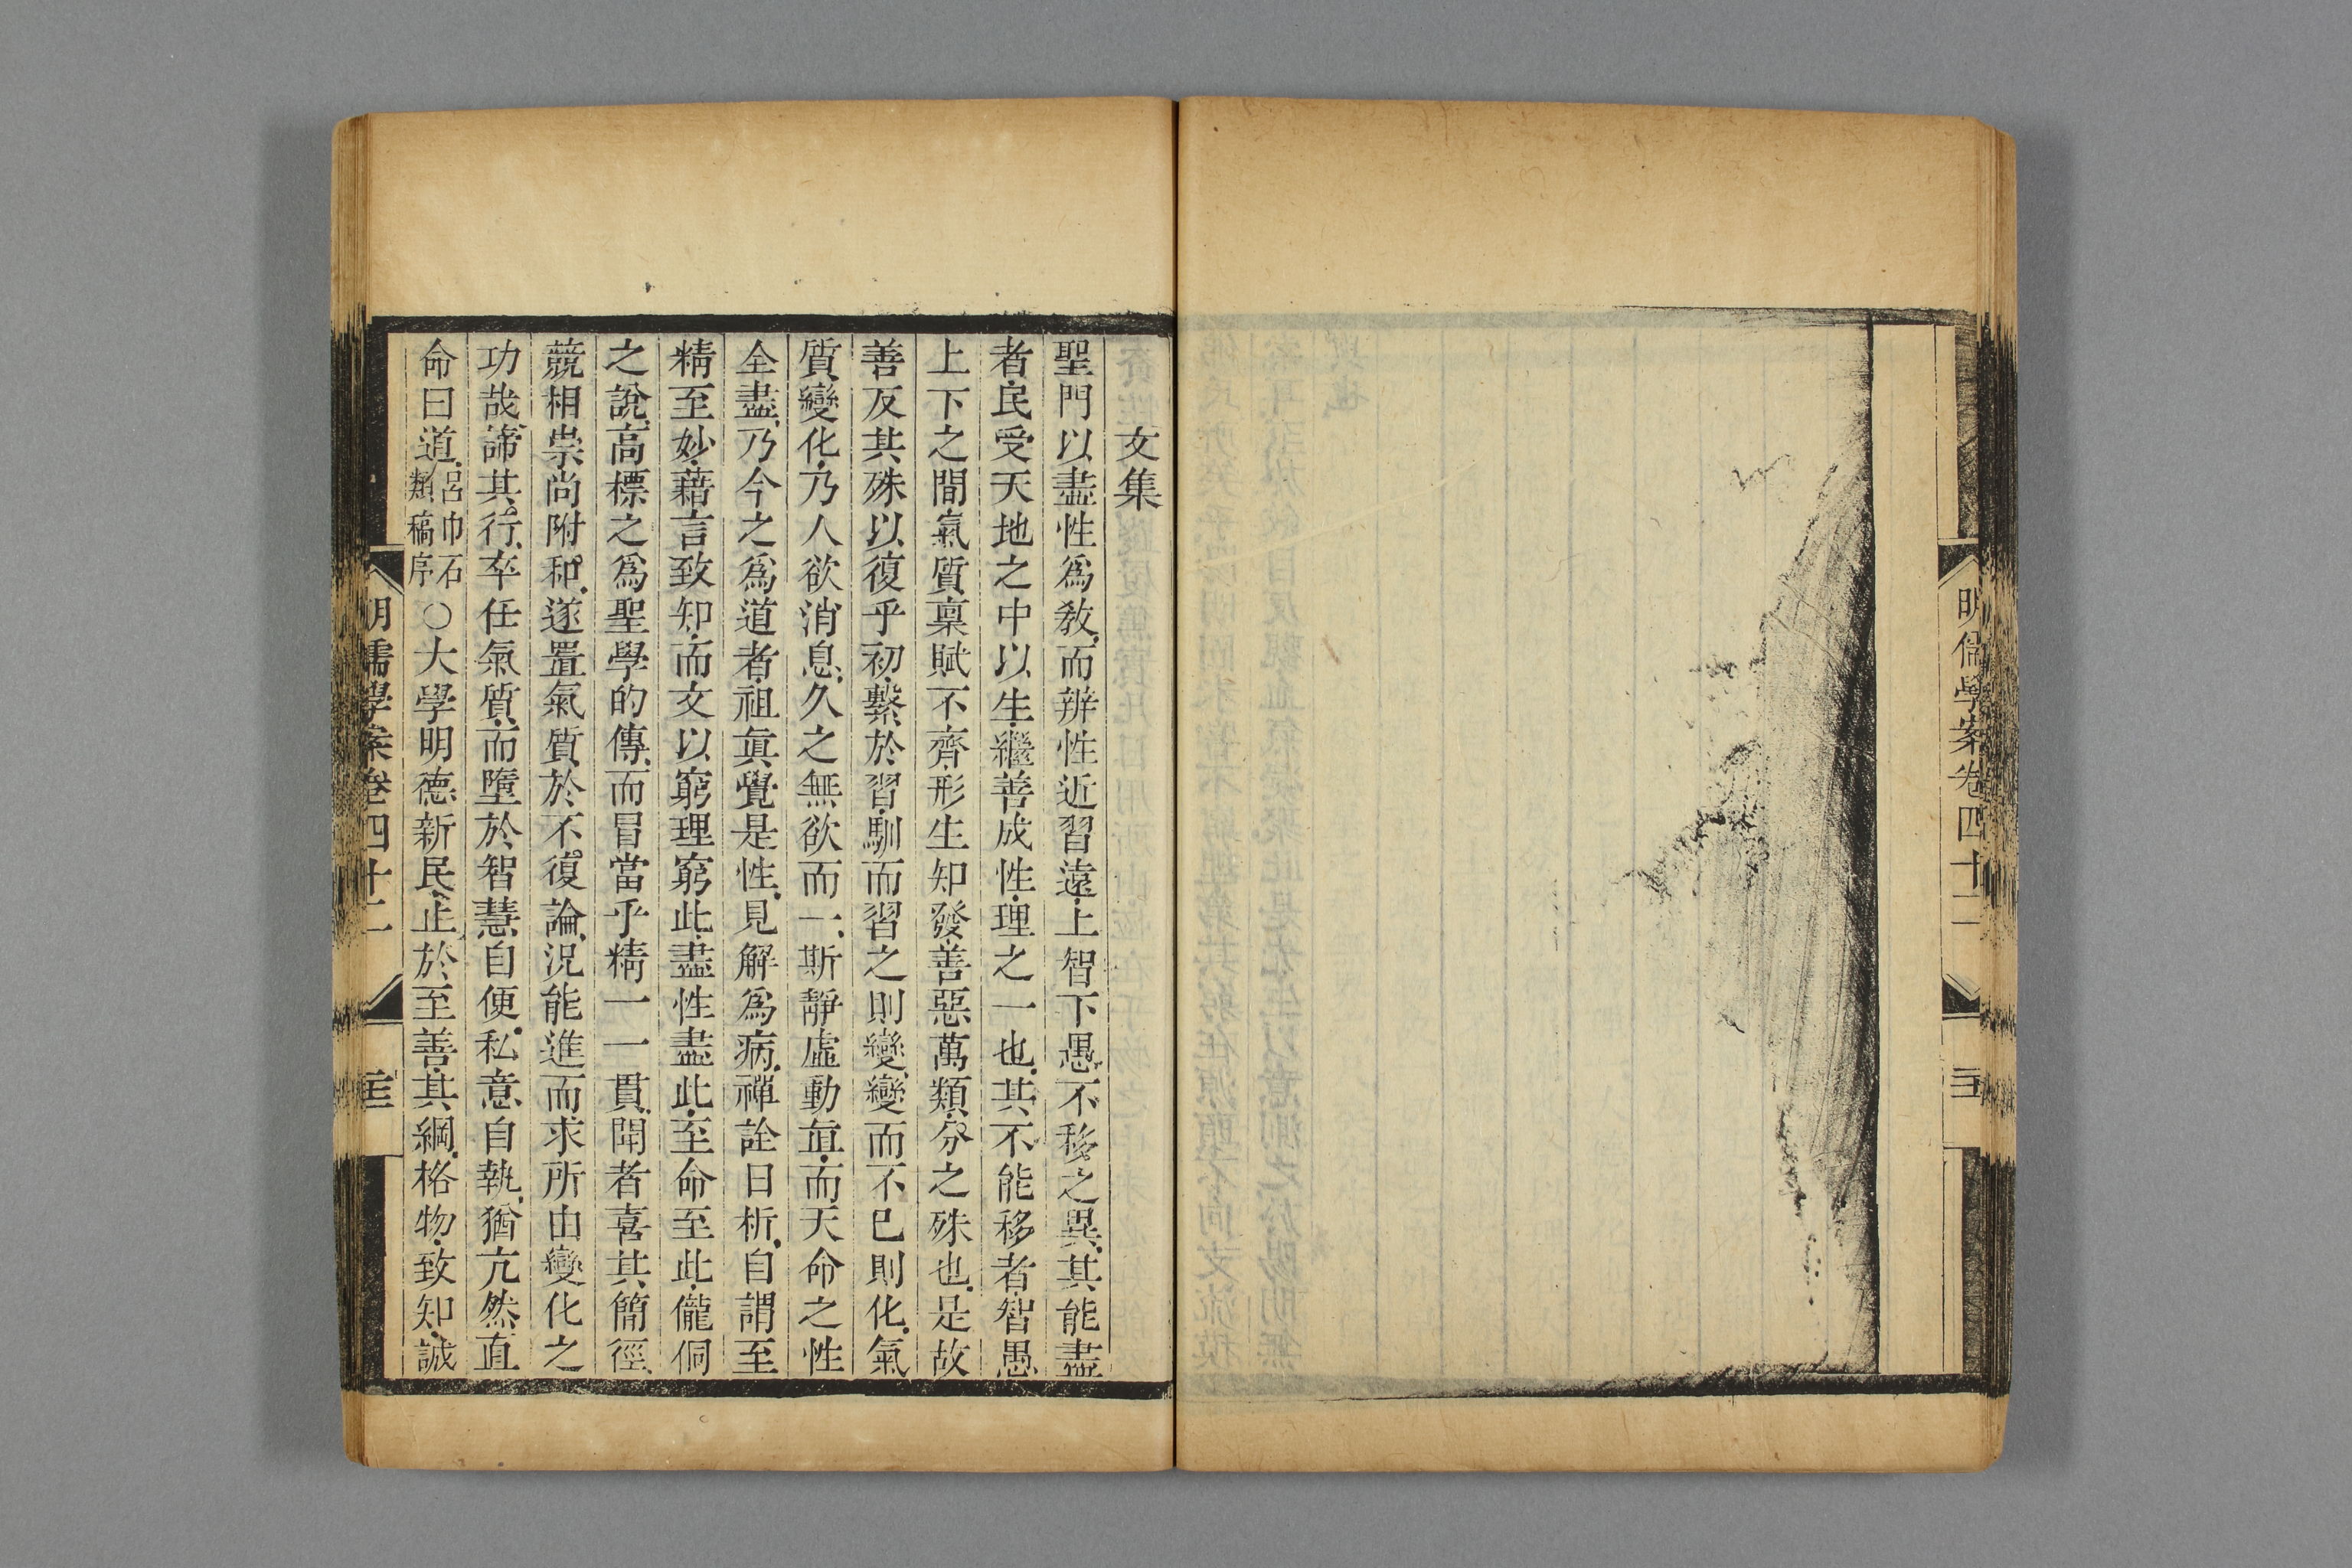 明儒學案卷四十二
文集
聖門以盡性爲敎而辨性近習遠上智下愚不移之異其能盡
者民受天地之中以生繼善成性理之一也其不能移者智愚
上下之間氣質稟賦不齊形生知發善惡萬類分之殊也是故
善反其殊以復乎初繫於習馴而習之則變變而不已則化氣
質變化乃人欲消息久之無欲而一斯靜虛動直而天命之性
全盡乃今之爲道者祖眞覺是性見解爲病禪詮日析自謂至
精至妙藉言致知而文以窮理窮此盡性盡此至命至此儱侗
之說高標之爲聖學的傳而冒當乎精一一貫聞者喜其簡徑
競相崇尚附和遂置氣質於不復論況能進而求所由變化之
功哉諦其行卒任氣質而墮於智慧自便私意自執猶亢然直
命曰道呂巾石類稿序○大學明德新民止於至善其綱格物致知誠
明儒學案卷四十二